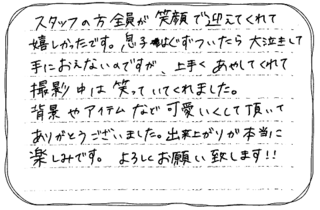 スタッフの方全員が笑顔で迎えてくれて
嬉しかったです。息子はぐずついたら大泣きして
手におえないのですが、上手くあやしてくれて
撮影中は笑っていてくれました。
背景やアイテムなど可愛いくして頂いて
ありがとうございました。出来上がりが本当に
楽しみです。よろしくお願い致します!!